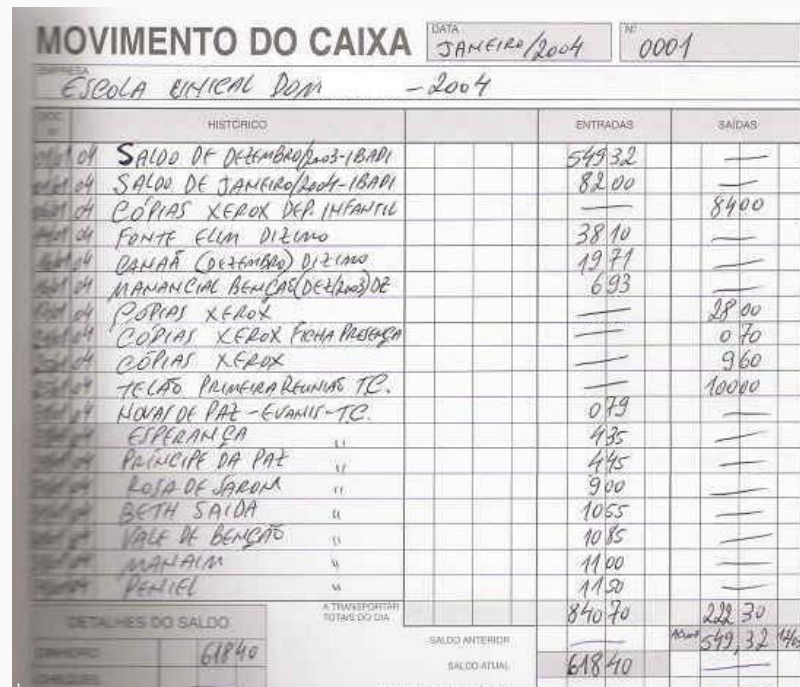 MOVIMENTO DO CAIXA DATA JANEIRO/2004 Nº 0001
EMPRESA ESCOLA DOM - 2004
HISTÓRICO ENTRADAS SAÍDAS
04 SALDO DE DEZEMBRO/2003-IBADI 549 32 —
04 SALDO DE JANEIRO/2004-IBADI 82 00 —
04 CÓPIAS XEROX DEP. INFANTIL — 84 00
04 FONTE ELIM DIZIMO 38 10 —
04 CANAÃ (DEZEMBRO) DIZIMO 19 71 —
04 MANANCIAL BENÇÃS (DEZ/2003) DZ 6 93 —
04 CÓPIAS XEROX — 28 00
04 CÓPIAS XEROX FICHA PRESENÇA — 0 70
04 CÓPIAS XEROX — 9 60
04 TELÃO PRIMEIRA REUNIÃO T.C. — 100 00
04 NOVAS DE PAZ - EVANIS - T.C. 0 79 —
04 ESPERANÇA " 4 35 —
PRÍNCIPE DA PAZ " 4 45 —
ROSA DE SAROM " 9 00 —
BETH SAIDA " 10 55 —
VALE DE BENÇÃO " 10 85 —
MANAIM " 11 00 —
PENIEL " 11 50 —
A TRANSPORTAR
TOTAIS DO DIA 840 70 222 30
DETALHES DO SALDO
SALDO ANTERIOR — 549,32
DINHEIRO 618 40
SALDO ATUAL 618 40 —
CHEQUES